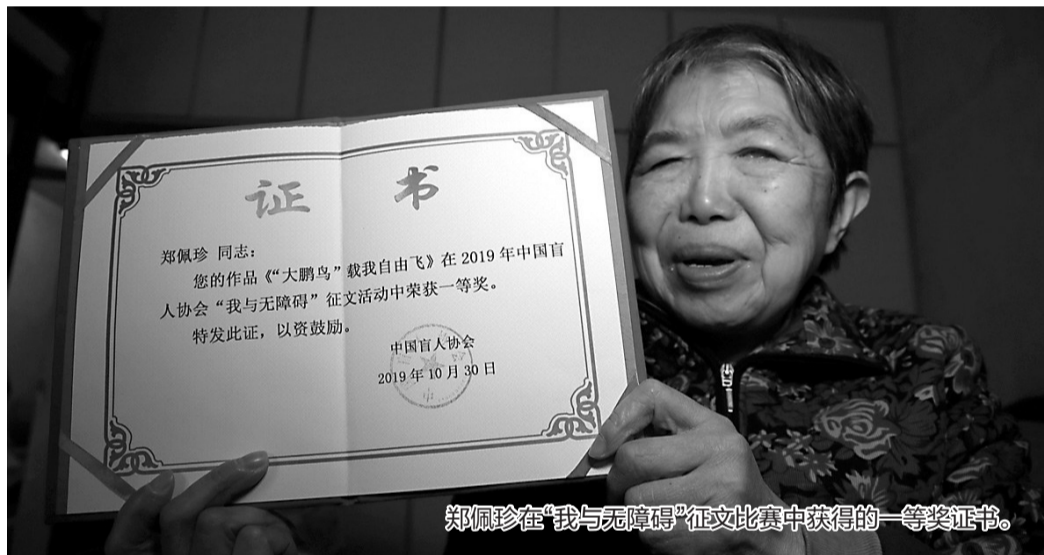 证 书
郑佩珍 同志：
您的作品《“大鹏鸟”载我自由飞》在 2019 年中国盲
人协会“我与无障碍”征文活动中荣获一等奖。
特发此证，以资鼓励。
中国盲人协会
2019 年 10 月 30 日
郑佩珍在“我与无障碍”征文比赛中获得的一等奖证书。